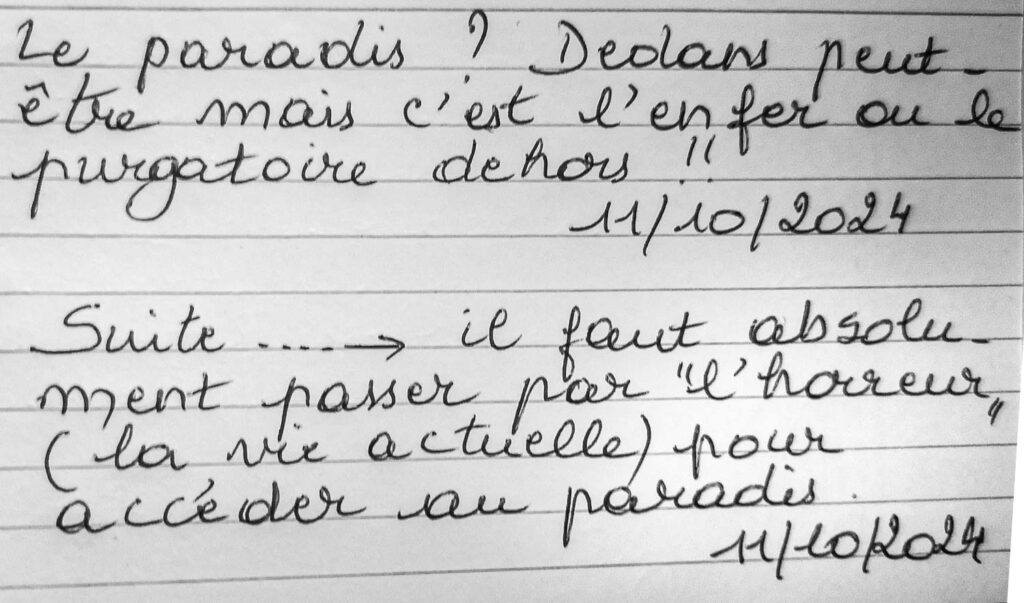 Le paradis ? Dedans peut-
être mais c'est l'enfer ou le
purgatoire dehors !!
11/10/2024
Suite .....→ il faut absolu-
ment passer par "l'horreur"
(la vie actuelle) pour
accéder au paradis.
11/10/2024